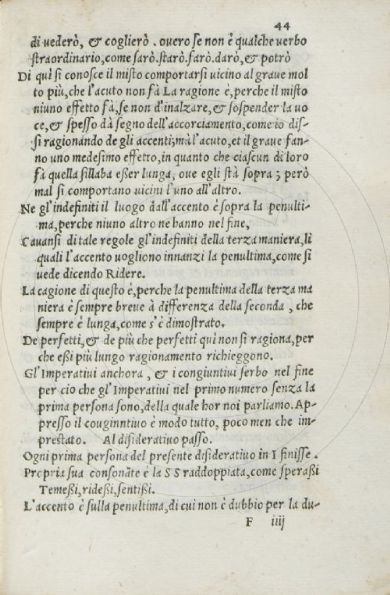 44
di vederò, & coglierò. overo se non è qualche verbo
straordinario, come farò. starò. farò. darò, & potrò
Di quì si conosce il misto comportarsi vicino al grave mol
to più, che l'acuto non fà La ragione è, perche il misto
niuno effetto fà, se non d'inalzare, & sospender la vo
ce, & spesso dà segno dell'accorciamento, come io dis-
si ragionando de gli accenti; mà l'acuto, et il grave fan-
no uno medesimo effetto, in quanto che ciascun di loro
fà quella sillaba eßer lunga, ove egli stà sopra; però
mal si comportano vicini l'uno all'altro.
Ne gl'indefiniti il luogo dall'accento è sopra la penulti-
ma, perche niuno altro ne hanno nel fine,
Cavansi di tale regole gl'indefiniti della terza maniera, li
quali l'accento vogliono innanzi la penultima, come si
vede dicendo Ridere.
La cagione di questo è, perche la penultima della terza ma
niera è sempre breve à differenza della seconda, che
sempre è lunga, come s'è dimostrato.
De perfetti, & de più che perfetti qui non si ragiona, per
che eßi più lungo ragionamento richieggono.
Gl'Imperativi anchora, & i congiuntivi serbo nel fine
per cio che gl'Imperativi nel primo numero senza la
prima persona sono, della quale hor noi parliamo. Ap-
presso il couginntivo è modo tutto, poco men che im-
prestato. Al disiderativo passo.
Ogni prima persona del presente disiderativo in I finisse.
Propria sua consonāte è la S S raddoppiata, come speraßi
Temeßi, rideßi, sentißi.
L'accento è sulla penultima, di cui non è dubbio per la du-
F iiij